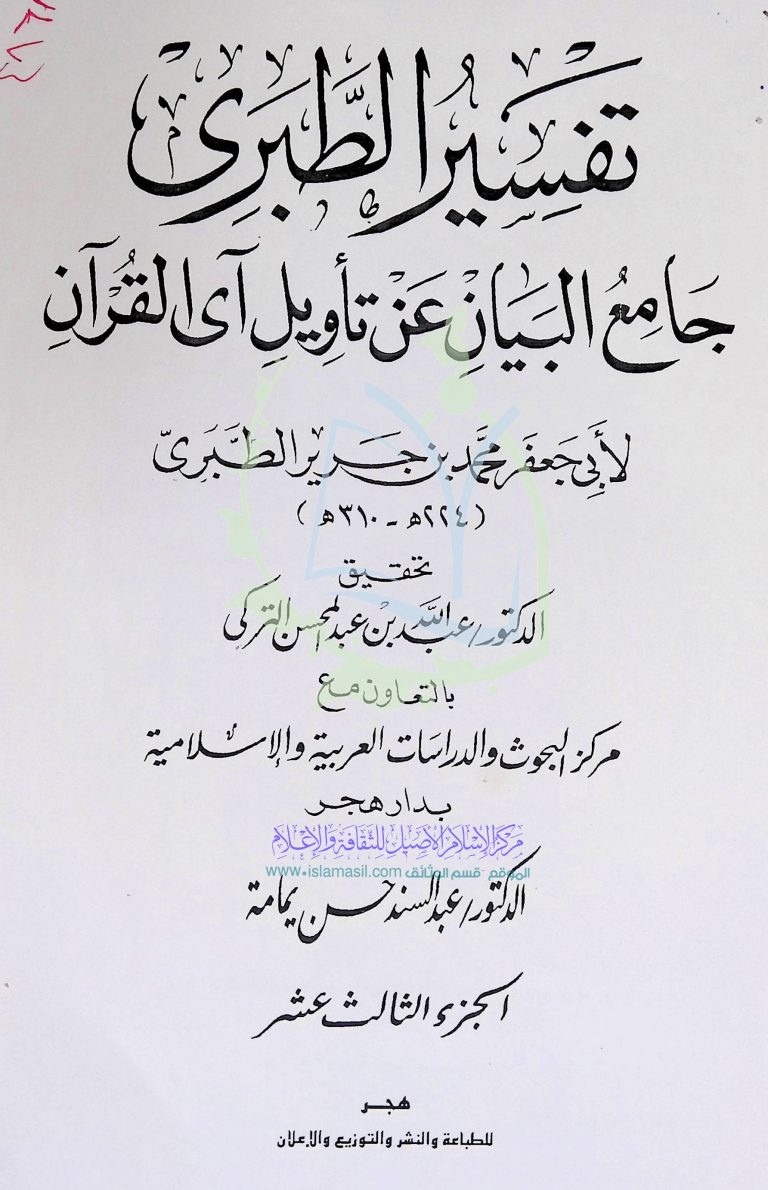 تَفسِيرُ الطَّبَرِى
جَامِعُ البَيَانِ عَنْ تأوِيلِ آى القُرْآنِ
لأَبِى جَعفَر محمَّد بن جَرِيرٍ الطَّبَرِىّ
( ٢٢٤ھ - ٣١٠ھ )
تحقيق
الدكتور/ عبد اللَّه بن عبد المحسن التركى
بالتعاون مع
مركز البحوث والدراسات العربية والإسلامية
بدار هجر
مركز الإسلام الأصيل للثقافة والإعلام
الموقع - قسم الوثائق www.islamasil.com
الدكتور/ عبد السند حسن يمامة
الجزء الثالث عشر
هجر
للطباعة والنشر والتوزيع والإعلان